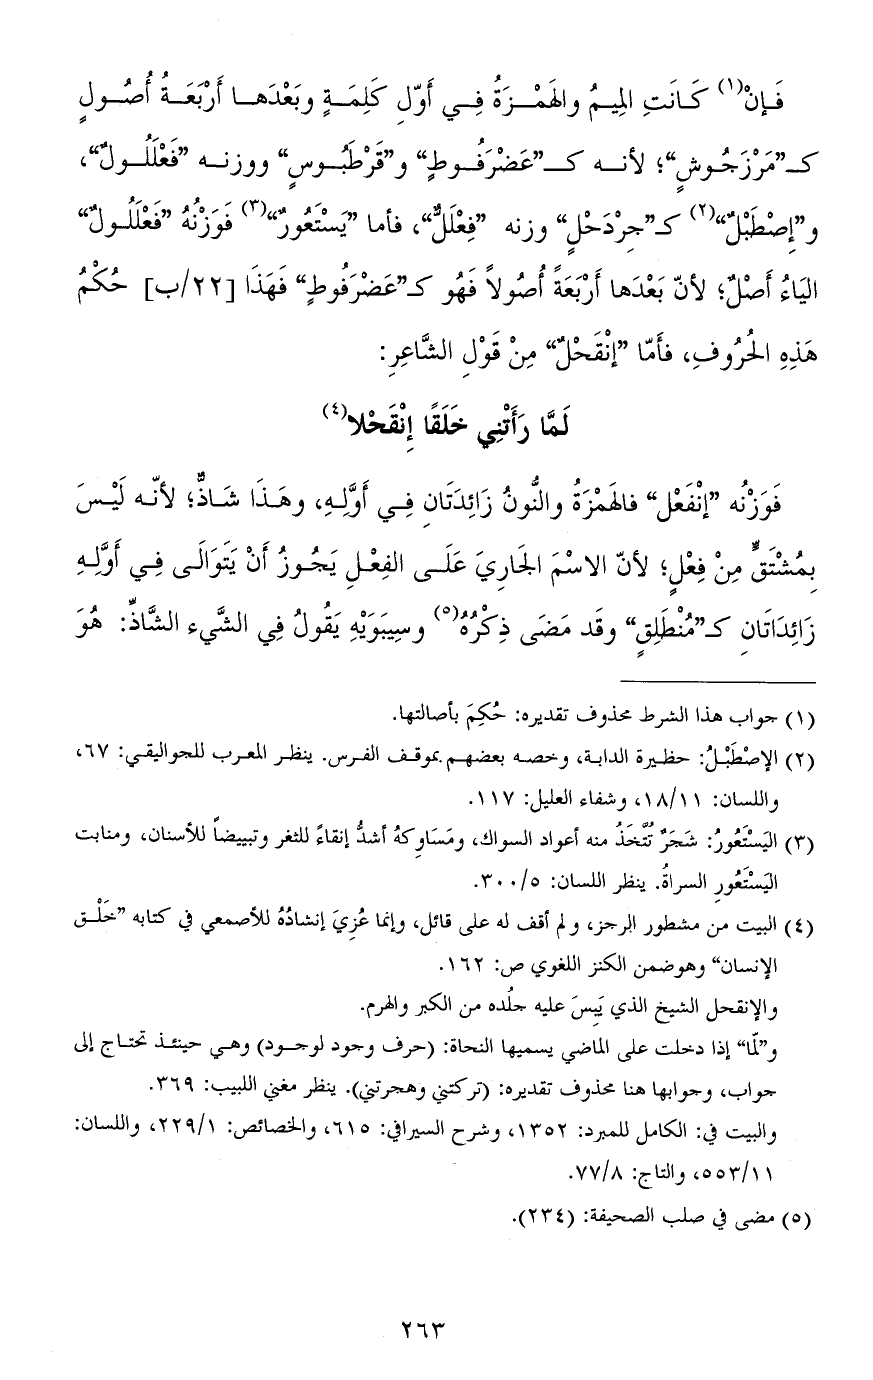 فَإنْ(١) كَانَتِ المِيمُ والهَمْزَةُ فِي أَوَّلِ كَلِمَةٍ وبَعْدَهَا أَرْبَعَةُ أُصُولٍ
كـ”مَرْزَجُوشٍ“؛ لأنه كـ”عَضْرَفُوطٍ“ و”قَرْطَبُوسٍ“ ووزنه ”فَعْلَلُولٌ“،
و”إِصْطَبْلٌ“(٢) كـ”جِرْدَحْلٍ“ وزنه ”فِعْلَلٌّ“، فأما ”يَسْتَعُورٌ“(٣) فَوَزْنُهُ ”فَعْلَلُولٌ“
اليَاءُ أَصْلٌ؛ لأنّ بَعْدَها أَرْبَعَةً أُصُولاً فَهُو كـ”عَضْرَفُوطٍ“ فَهَذَا [٢٢/ب] حُكْمُ
هَذِهِ الحُرُوفِ، فأَمّا ”إنْقَحْلٌ“ مِنْ قَوْلِ الشَّاعِرِ:
لَمَّا رَأَتْنِي خَلَقًا إِنْقَحْلا(٤)
فَوَزْنُه ”إنْفَعْل“ فالهَمْزَةُ والنُّونُ زَائِدَتَانِ فِي أَوَّلِهِ، وهَذَا شَاذٌّ؛ لأنّه لَيْسَ
بِمُشْتَقٍّ مِنْ فِعْلٍ؛ لأنّ الاسْمَ الجَارِيَ عَلَى الفِعْلِ يَجُوزُ أَنْ يَتَوَالَى فِي أَوَّلِهِ
زَائِدَاتَانِ كـ”مُنْطَلِقٍ“ وقَد مَضَى ذِكْرُهُ(٥) وسِيبَوَيْهِ يَقُولُ فِي الشَّيء الشَّاذِّ: هُوَ
(١) جواب هذا الشرط محذوف تقديره: حُكِمَ بأصالتها.
(٢) الإصْطَبْلُ: حظيرة الدابة، وخصه بعضهم بموقف الفرس. ينظر المعرب للجواليقي: ٦٧،
واللسان: ١٨/١١، وشفاء العليل: ١١٧.
(٣) اليَسْتَعُورُ: شَجَرٌ تُتَّخَذُ منه أعواد السواك، ومَسَاوِكهُ أشدُّ إنقاءً للثغر وتبييضاً للأسنان، ومنابت
اليَسْتَعُورِ السراةُ. ينظر اللسان: ٣٠٠/٥.
(٤) البيت من مشطور الرجز، ولم أقف له على قائل، وإنما عُزِيَ إنشادُهُ للأصمعي في كتابه ”خَلْق
الإنسان“ وهوضمن الكنز اللغوي ص: ١٦٢.
والإنقحل الشيخ الذي يَبِسَ عليه جلُده من الكبر والهرم.
و”لمّا“ إذا دخلت على الماضي يسميها النحاة: (حرف وجود لوجود) وهي حينئذ تحتاج إلى
جواب، وجوابها هنا محذوف تقديره: (تركتني وهجرتني). ينظر مغني اللبيب: ٣٦٩.
والبيت في: الكامل للمبرد: ١٣٥٢، وشرح السيرافي: ٦١٥، والخصائص: ٢٢٩/١، واللسان:
٥٥٣/١١، والتاج: ٧٧/٨.
(٥) مضى في صلب الصحيفة: (٢٣٤).
٢٦٣